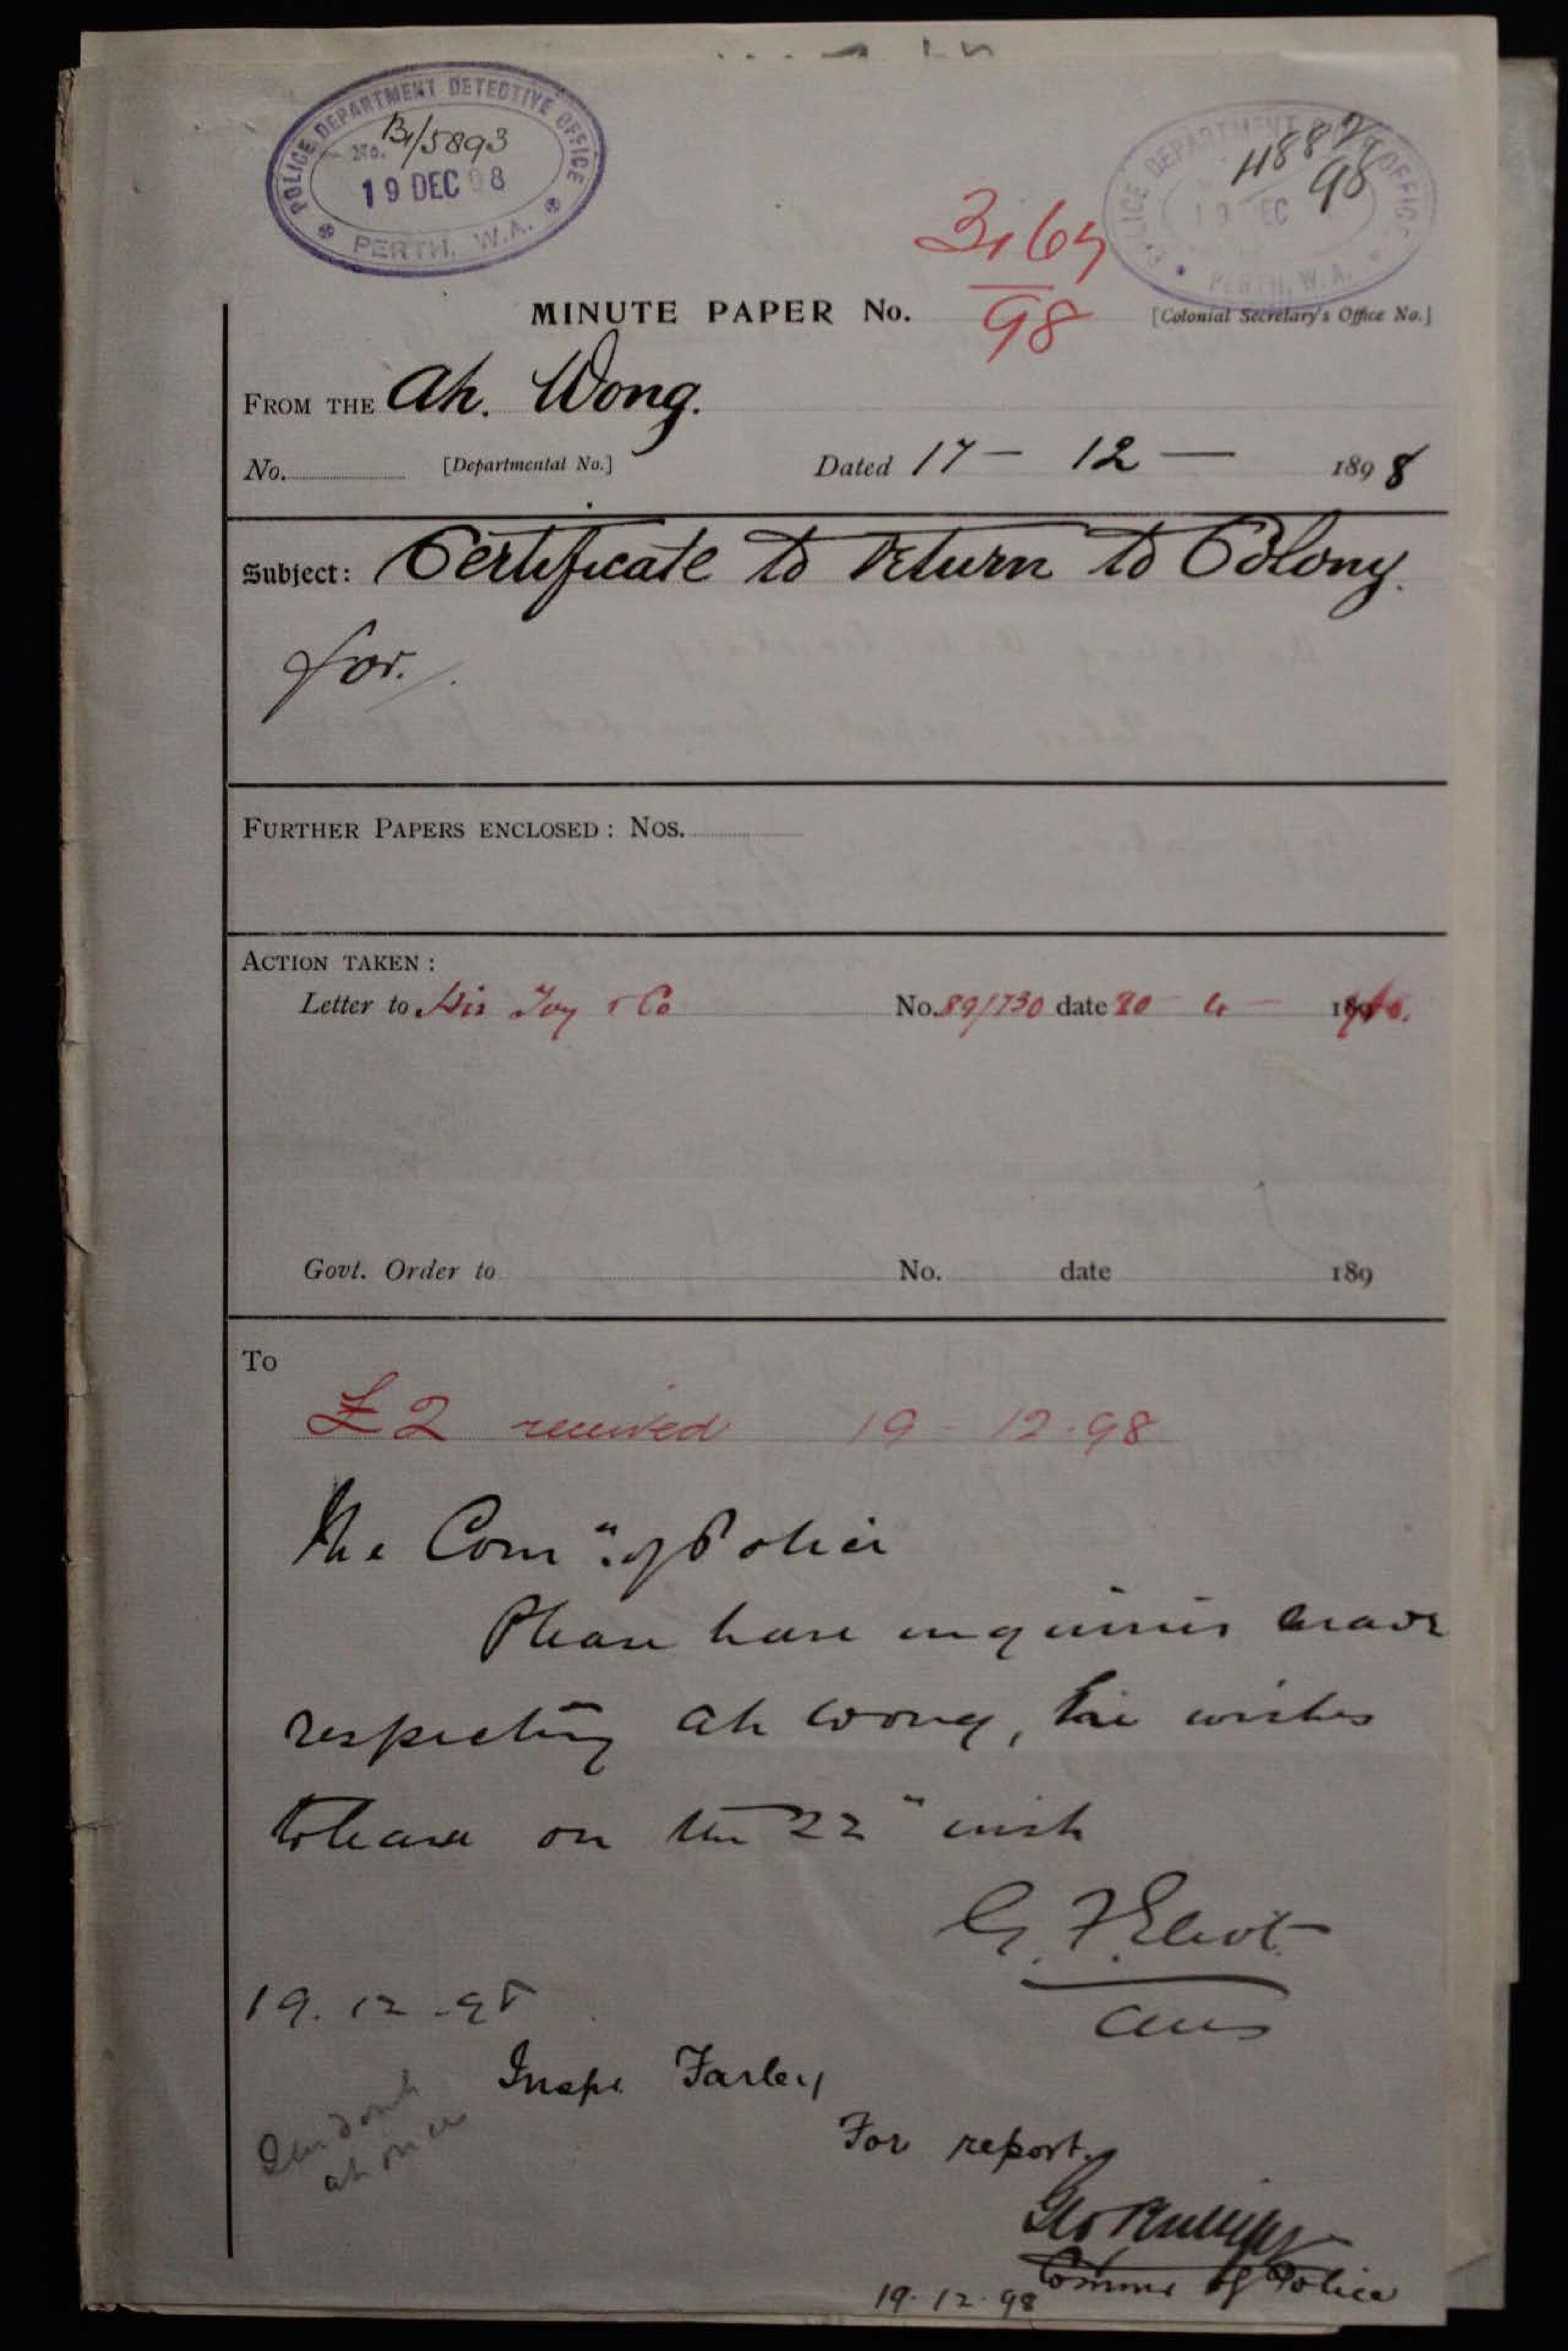 POLICE DEPARTMENT DETECTIVE OFFICE
No. B/5893
19 DEC 98
PERTH. W.A.
POLICE DEPARTMENT OFFICE
98
19 DEC
PERTH, W.A.
3169
98
MINUTE PAPER No.
[Colonial Secretary's Office No.]
FROM THE Ah. Wong.
No. [Departmental No.] Dated 17 – 12 – 1898
Subject: Certificate to return to Colony.
for.
FURTHER PAPERS ENCLOSED: Nos.
ACTION TAKEN:
Letter to & Co No. 89/730 date 20 4 –
Govt. Order to No. date 189
To
£2 received 19 - 12.98
The Comn. of Police
Please have inquiries made
respecting Ah Wong, he wishes
to leave on the 22" inst
G. F. Eliot
19.12.98
Inspr Farley
at once
For report.
Geo Phillips
Commr of Police
19.12.98